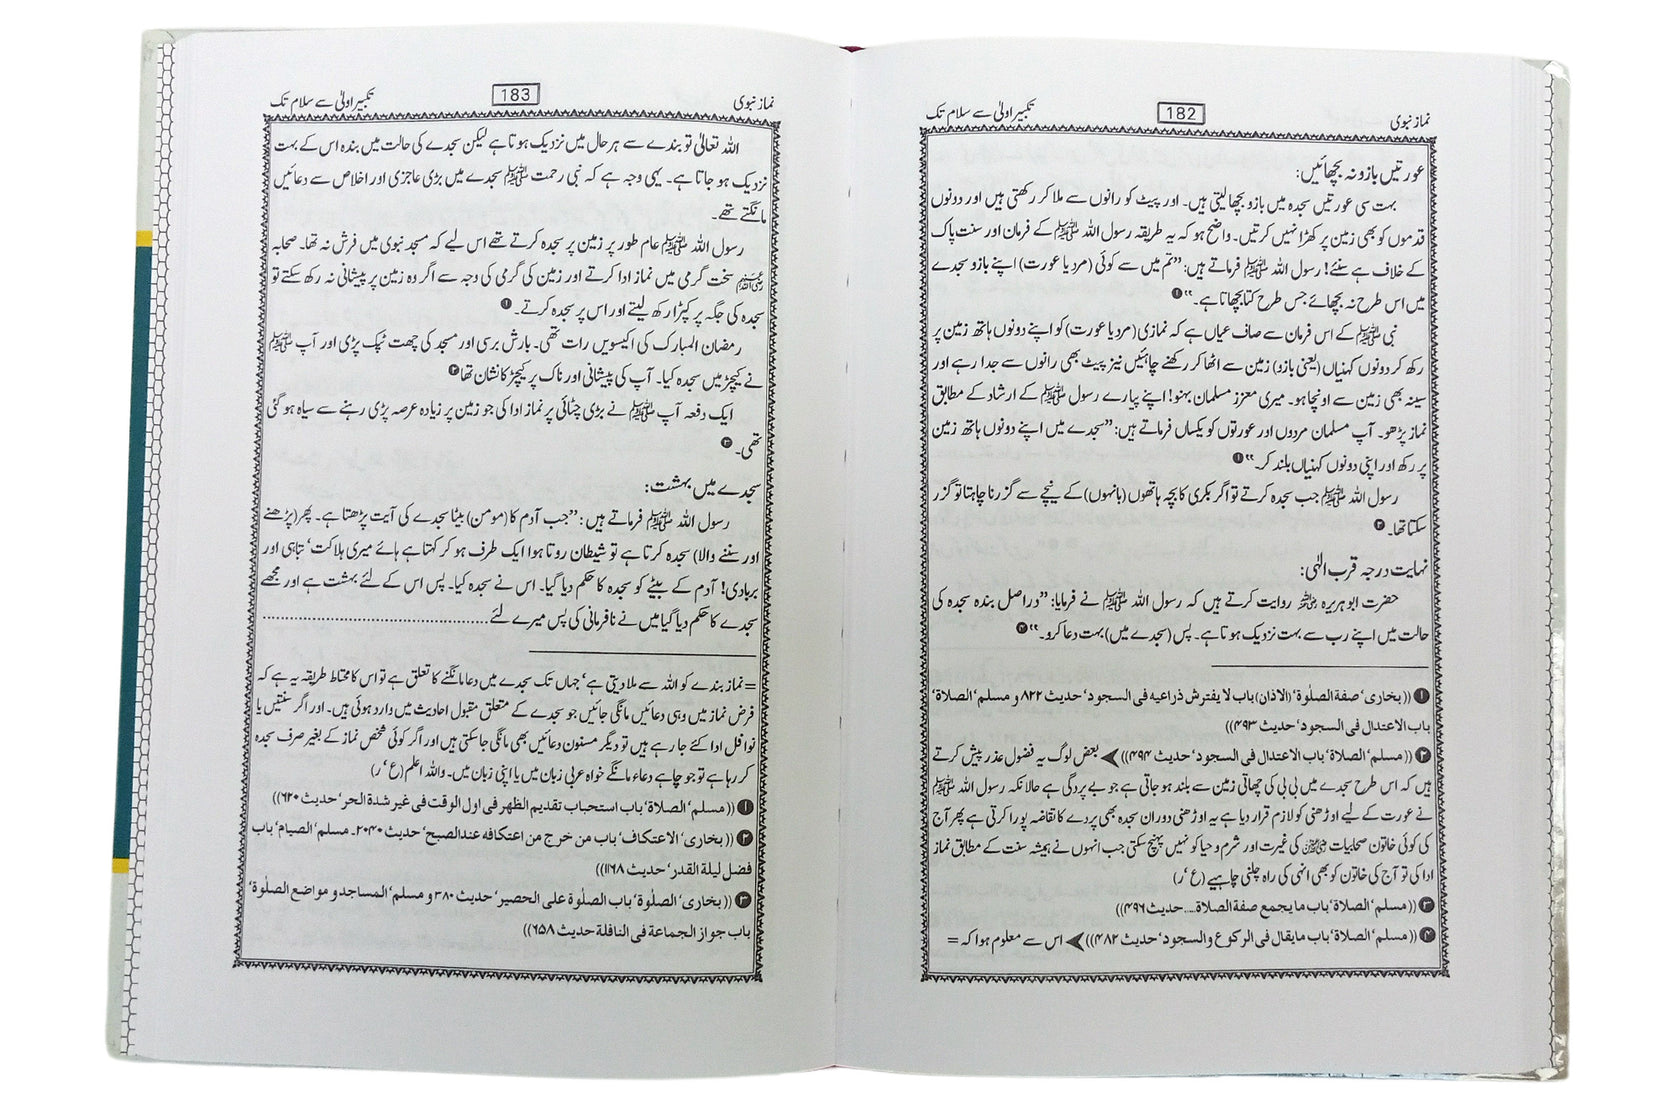 نماز نبوی 182 تکبیر اولیٰ سے سلام تک
عورتیں بازو نہ بچھائیں:
بہت سی عورتیں سجدہ میں بازو بچھا لیتی ہیں۔ اور پیٹ کو رانوں سے ملا کر رکھتی ہیں اور دونوں
قدموں کو بھی زمین پر کھڑا نہیں کرتیں۔ واضح ہو کہ یہ طریقہ رسول اللہ ﷺ کے فرمان اور سنت پاک
کے خلاف ہے سنئے! رسول اللہ ﷺ فرماتے ہیں: ”تم میں سے کوئی (مرد یا عورت) اپنے بازو سجدے
میں اس طرح نہ بچھائے جس طرح کتا بچھاتا ہے۔“ ❶
نبی ﷺ کے اس فرمان سے صاف عیاں ہے کہ نمازی (مرد یا عورت) کو اپنے دونوں ہاتھ زمین پر
رکھ کر دونوں کہنیاں (یعنی بازو) زمین سے اٹھا کر رکھنے چاہئیں نیز پیٹ بھی رانوں سے جدا رہے اور
سینہ بھی زمین سے اونچا ہو۔ میری معزز مسلمان بہنو! اپنے پیارے رسول ﷺ کے ارشاد کے مطابق
نماز پڑھو۔ آپ مسلمان مردوں اور عورتوں کو یکساں فرماتے ہیں: ”سجدے میں اپنے دونوں ہاتھ زمین
پر رکھ اور اپنی دونوں کہنیاں بلند کر۔“ ❶
رسول اللہ ﷺ جب سجدہ کرتے تو اگر بکری کا بچہ ہاتھوں (بانہوں) کے نیچے سے گزرنا چاہتا تو گزر
سکتا تھا۔ ❸
نہایت درجہ قرب الٰہی:
حضرت ابو ہریرہ رضی اللہ عنہ روایت کرتے ہیں کہ رسول اللہ ﷺ نے فرمایا: ”دراصل بندہ سجدہ کی
حالت میں اپنے رب سے بہت نزدیک ہوتا ہے۔ پس (سجدے میں) بہت دعا کرو۔“ ❹
❶ ((بخاری‘ صفة الصلٰوة‘ (الاذان) باب لا یفترش ذراعیه فی السجود‘ حدیث ۸۲۲ و مسلم‘ الصلاة‘
باب الاعتدال فی السجود‘ حدیث ۴۹۳))
❷ ((مسلم‘ الصلاة‘ باب الاعتدال فی السجود‘ حدیث ۴۹۴)) ➤ بعض لوگ یہ فضول عذر پیش کرتے
ہیں کہ اس طرح سجدے میں بی بی کی چھاتی زمین سے بلند ہو جاتی ہے جو بے پردگی ہے حالانکہ رسول اللہ ﷺ
نے عورت کے لیے اوڑھنی کو لازم قرار دیا ہے یہ اوڑھنی دوران سجدہ بھی پردے کا تقاضہ پورا کرتی ہے پھر آج
کی کوئی خاتون صحابیات رضی اللہ عنہن کی غیرت اور شرم و حیا کو نہیں پہنچ سکتی جب انہوں نے ہمیشہ سنت کے مطابق نماز
ادا کی تو آج کی خاتون کو بھی انہی کی راہ چلنی چاہیے (ع ‘ر)
❸ ((مسلم‘ الصلاة‘ باب ما یجمع صفة الصلاة.... حدیث ۴۹۶))
❹ ((مسلم‘ الصلاة‘ باب ما یقال فی الرکوع والسجود‘ حدیث ۴۸۲)) ➤ اس سے معلوم ہوا کہ =
نماز نبوی 183 تکبیر اولیٰ سے سلام تک
اللہ تعالیٰ تو بندے سے ہر حال میں نزدیک ہوتا ہے لیکن سجدے کی حالت میں بندہ اس کے بہت
نزدیک ہو جاتا ہے۔ یہی وجہ ہے کہ نبی رحمت ﷺ سجدے میں بڑی عاجزی اور اخلاص سے دعائیں
مانگتے تھے۔
رسول اللہ ﷺ عام طور پر زمین پر سجدہ کرتے تھے اس لیے کہ مسجد نبوی میں فرش نہ تھا۔ صحابہ
رضی اللہ عنہم سخت گرمی میں نماز ادا کرتے اور زمین کی گرمی کی وجہ سے اگر وہ زمین پر پیشانی نہ رکھ سکتے تو
سجدہ کی جگہ پر کپڑا رکھ لیتے اور اس پر سجدہ کرتے۔ ❶
رمضان المبارک کی اکیسویں رات تھی۔ بارش برسی اور مسجد کی چھت ٹپک پڑی اور آپ ﷺ
نے کیچڑ میں سجدہ کیا۔ آپ کی پیشانی اور ناک پر کیچڑ کا نشان تھا ❷
ایک دفعہ آپ ﷺ نے بڑی چٹائی پر نماز ادا کی جو زمین پر زیادہ عرصہ پڑی رہنے سے سیاہ ہو گئی
تھی۔ ❸
سجدے میں بہشت:
رسول اللہ ﷺ فرماتے ہیں: ”جب آدم کا (مومن) بیٹا سجدے کی آیت پڑھتا ہے۔ پھر (پڑھنے
اور سننے والا) سجدہ کرتا ہے تو شیطان روتا ہوا ایک طرف ہو کر کہتا ہے ہائے میری ہلاکت‘ تباہی اور
بربادی! آدم کے بیٹے کو سجدہ کا حکم دیا گیا۔ اس نے سجدہ کیا۔ پس اس کے لئے بہشت ہے اور مجھے
سجدے کا حکم دیا گیا میں نے نافرمانی کی پس میرے لئے ........................................
= نماز بندے کو اللہ سے ملا دیتی ہے‘ جہاں تک سجدے میں دعا مانگنے کا تعلق ہے تو اس کا محتاط طریقہ یہ ہے کہ
فرض نماز میں وہی دعائیں مانگی جائیں جو سجدے کے متعلق مقبول احادیث میں وارد ہوئی ہیں۔ اور اگر سنتیں یا
نوافل ادا کئے جا رہے ہیں تو دیگر مسنون دعائیں بھی مانگی جا سکتی ہیں اور اگر کوئی شخص نماز کے بغیر صرف سجدہ
کر رہا ہے تو جو چاہے دعاء مانگے خواہ عربی زبان میں یا اپنی زبان میں۔ واللہ اعلم (ع ‘ ر)
❶ ((مسلم‘ الصلاة‘ باب استحباب تقدیم الظهر فی اول الوقت فی غیر شدة الحر‘ حدیث ۶۲۰))
❷ ((بخاری‘ الاعتکاف‘ باب من خرج من اعتکافه عند الصبح‘ حدیث ۲۰۴۰۔ مسلم‘ الصیام‘ باب
فضل لیلة القدر‘ حدیث ۱۱۶۸))
❸ ((بخاری‘ الصلٰوة‘ باب الصلٰوة علی الحصیر‘ حدیث ۳۸۰ و مسلم‘ المساجد و مواضع الصلٰوة‘
باب جواز الجماعة فی النافلة حدیث ۶۵۸))